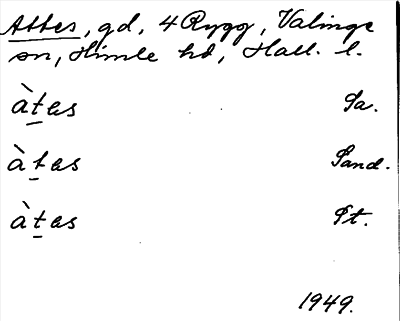 Attes, gd, 4 Rygg, Valinge
sn, Himle hd, Hall. l.
àt̠as Sa.
àt̠as Sand.
àt̠as St.
1949.